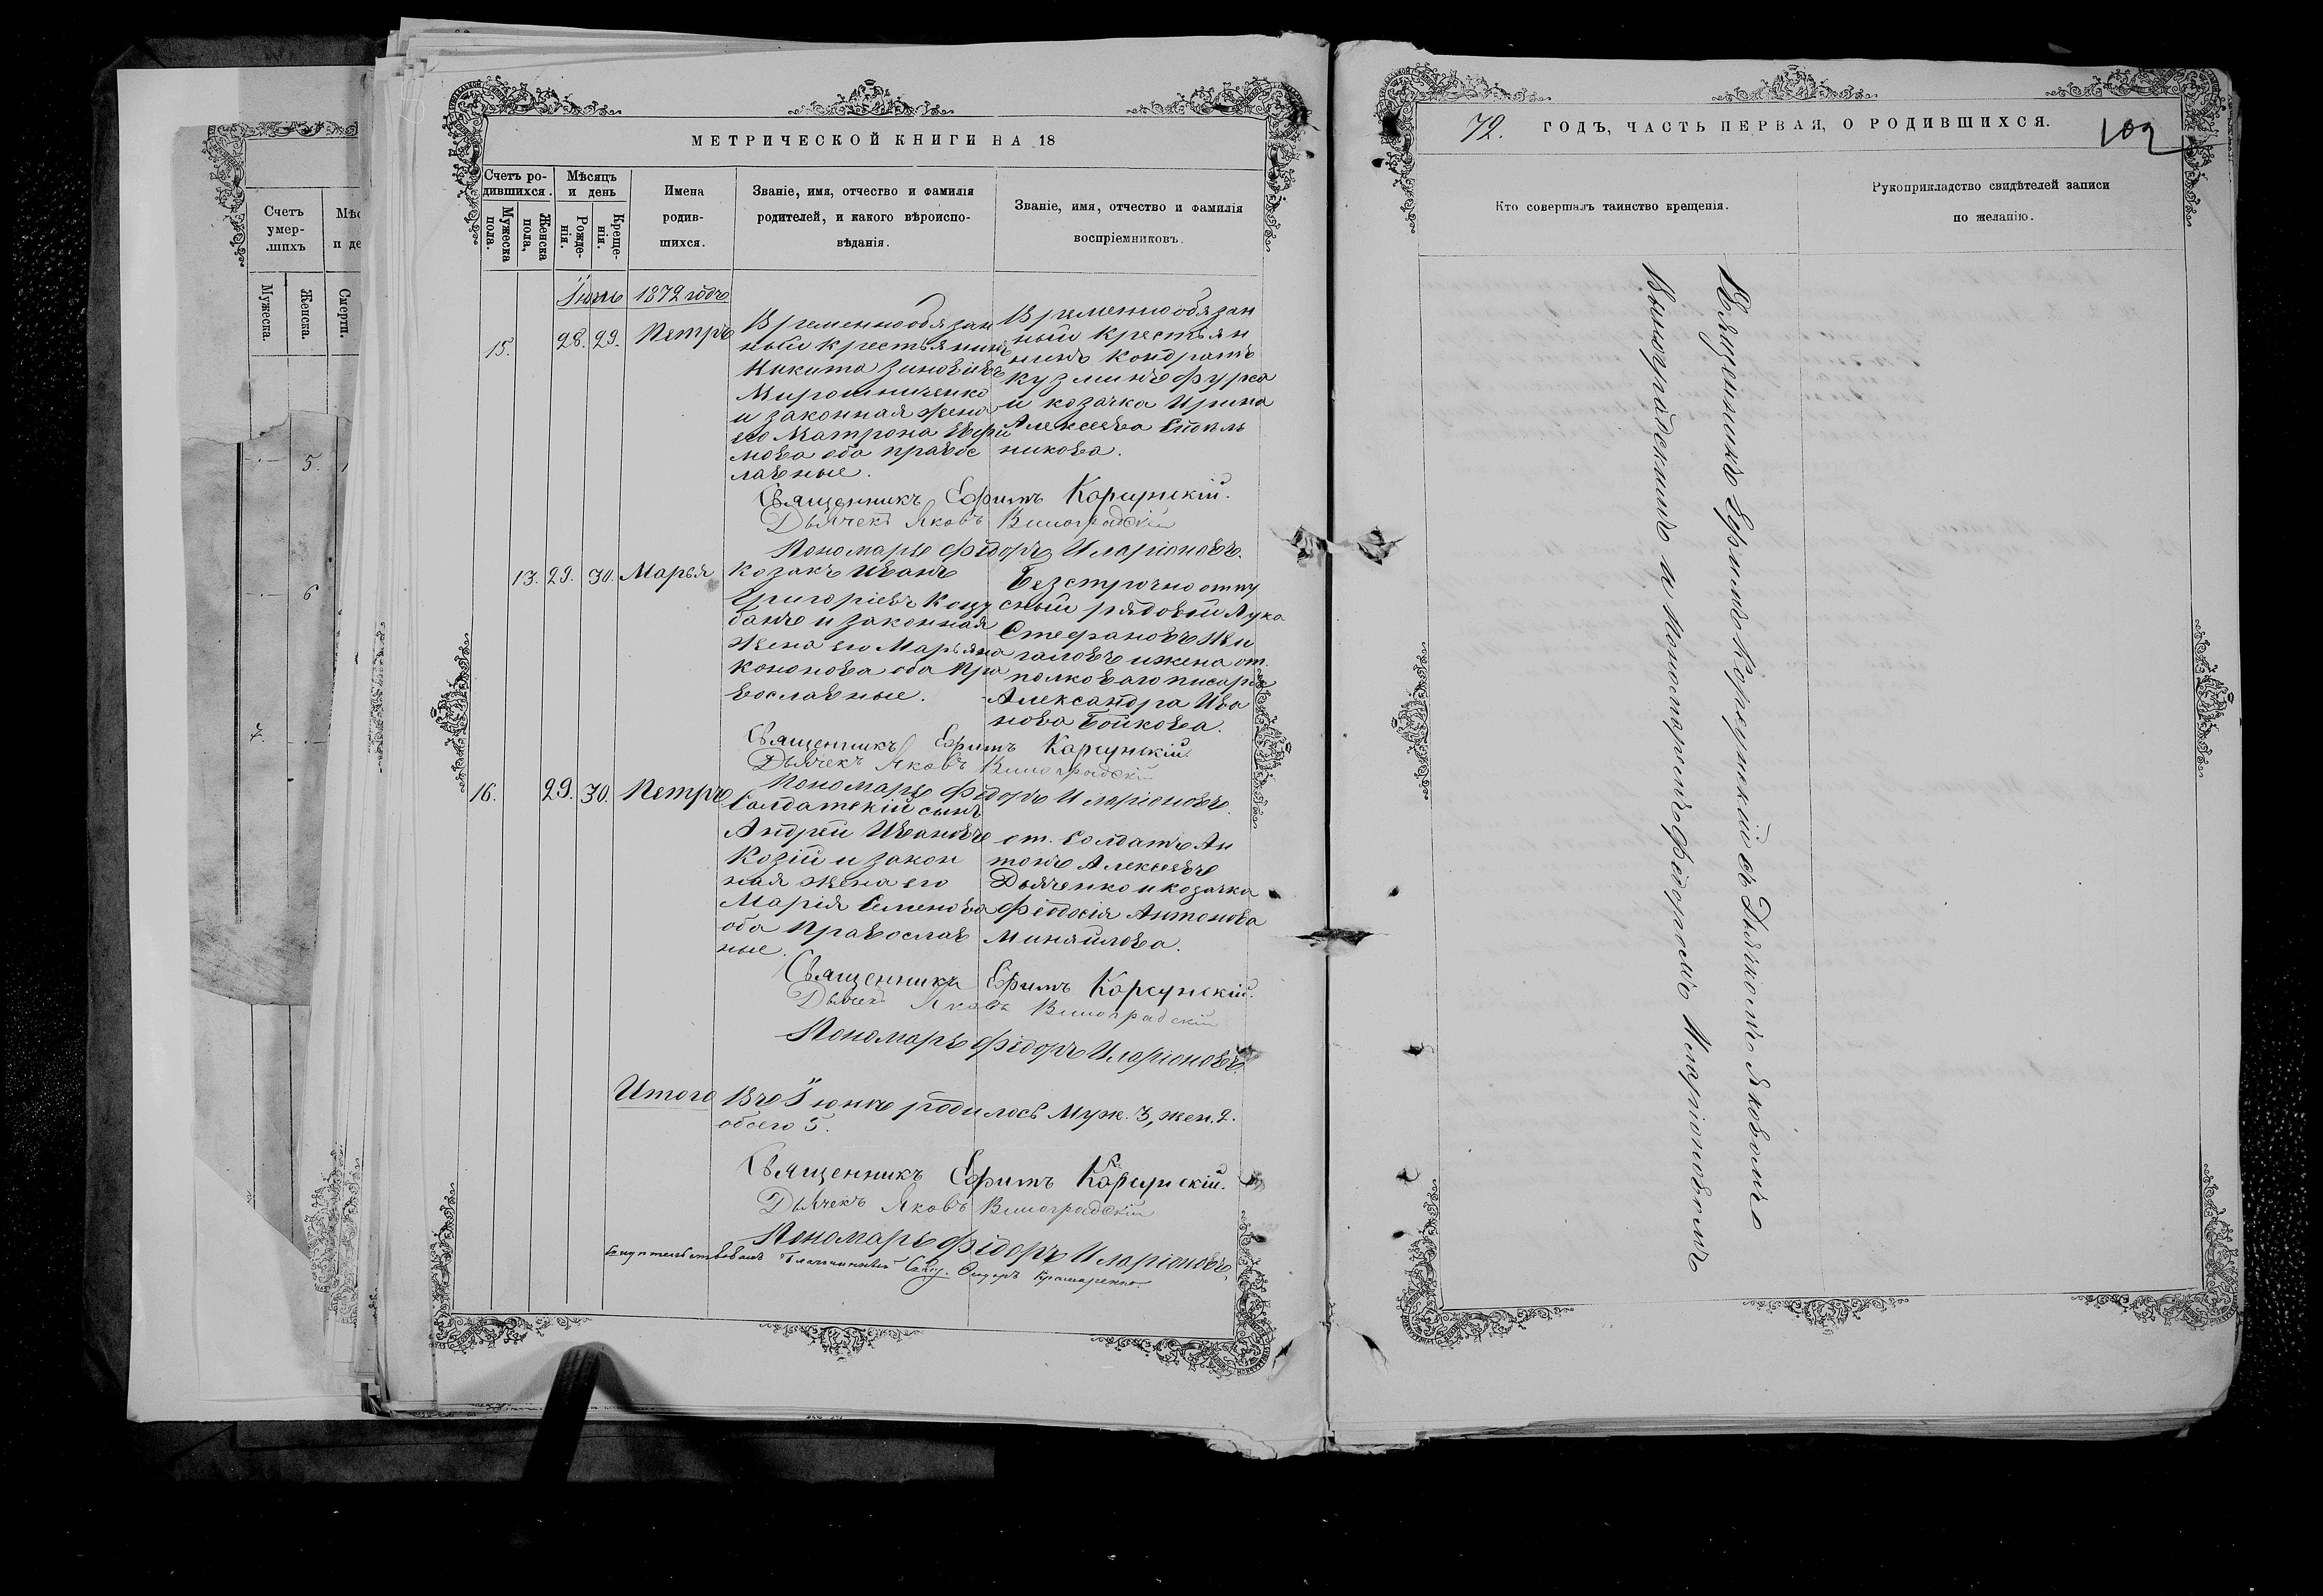 Счетъ
умер-
шихъ
Мужеска.
Женска.
Смерти.
5.
6
7.
МЕТРИЧЕСКОЙ КНИГИ НА 18
Счетъ ро-
дившихся.
Мѣсяцъ
и день
Мужеска
пола.
Женска
пола,
Рожде-
нія.
Креще-
нія.
Имена
родив-
шихся.
Званіе, имя, отчество и фамилія
родителей, и какого вѣроиспо-
вѣданія.
Званіе, имя, отчество и фамилія
воспріемниковъ.
Іюнь 1872 годъ
15. 28. 29. Петръ
Временно обязан
ный крестьянинъ
Никита Зиновіевъ
Мирошниченко
и законная жена
его Матрона Ефи
мова оба правос
лавные.
Временно обязан
ный крестьян
нинъ Кондратъ
Кузминъ Фурса
и козачка Ирина
Алексеева
никова.
Священникъ Ефимъ Корсунскій.
Дьячекъ Яковъ Виноградскій
Пономарь Фёдоръ Иларіоновъ.
13. 29. 30. Марья
Козакъ Иванъ
Григоріевъ Коцу
банъ и законная
жена его Марьяна
Кононова оба пра
вославные.
Безсрочно отпу
сный рядовой Лука
Стефановъ Жи
галовъ и жена от.
полковаго писаря
Александра Ива
нова Бойкова.
Священникъ Ефимъ Корсунскій.
Дьячекъ Яковъ Виноградскій
Пономарь Фёдоръ Иларіоновъ.
16. 29. 30. Петръ
Солдатскій сынъ
Андрей Ивановъ
Козій и закон
ная жена его
Марія Семенова
оба православ
ные.
от. солдатъ Ан
тонъ Алексеевъ
Дьяченко и козачка
Феодосія Антонова
Миняйлова.
Священникъ Ефимъ Корсунскій.
Дьячекъ Яковъ Виноградскій
Пономарь Фёдоръ Иларіоновъ.
Итого Въ Іюнѣ родилось Муж. 3, жен. 2.
обоего 5.
Священникъ Ефимъ Корсунскій.
Дьячекъ Яковъ Виноградскій
Пономарь Фёдоръ Иларіоновъ.
Свидетельствовалъ Благочинный Свящ. Крамаренко
72. ГОДЪ, ЧАСТЬ ПЕРВАЯ, О РОДИВШИХСЯ.
102
Кто совершалъ таинство крещенія.
Рукоприкладство свидѣтелей записи
по желанію.
Священникъ Ефимъ Корсунскій съ Дьячкомъ Яковомъ
Виноградскимъ и Пономаремъ Фёдоромъ Иларіоновымъ